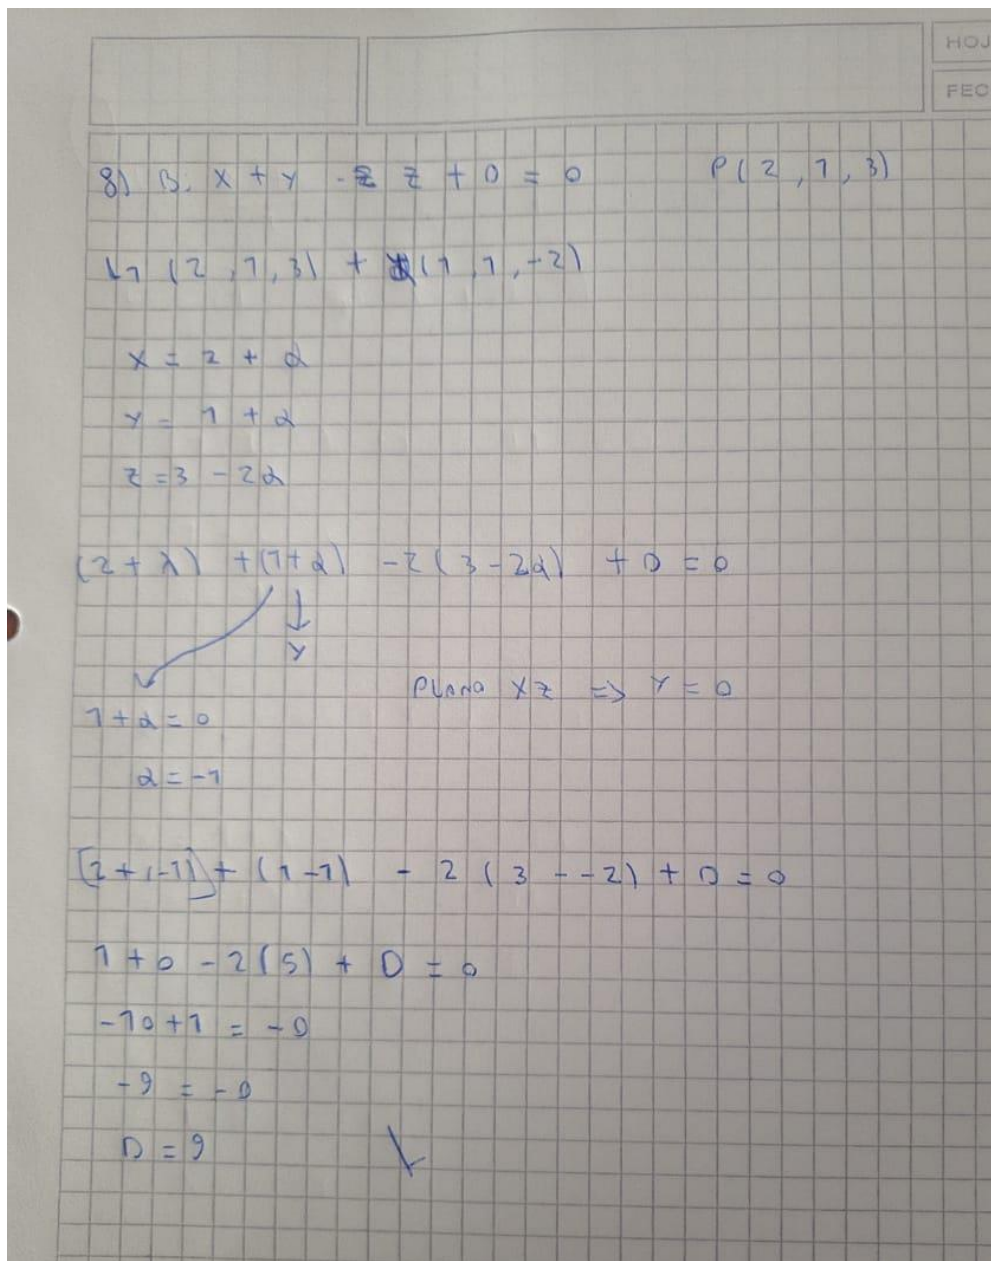 HOJ
FEC
8) B. X + Y - 2 z + D = 0 P(2, 1, 3)
L1 (2, 1, 3) + α(1, 1, -2)
X = 2 + α
Y = 1 + α
z = 3 - 2α
(2 + λ) + (1 + α) - 2(3 - 2α) + D = 0
Y
PLANO XZ => Y = 0
1 + α = 0
α = -1
[2 + (-1)] + (1 - 1) - 2(3 - -2) + D = 0
1 + 0 - 2(5) + D = 0
-10 + 1 = -D
-9 = -D
D = 9